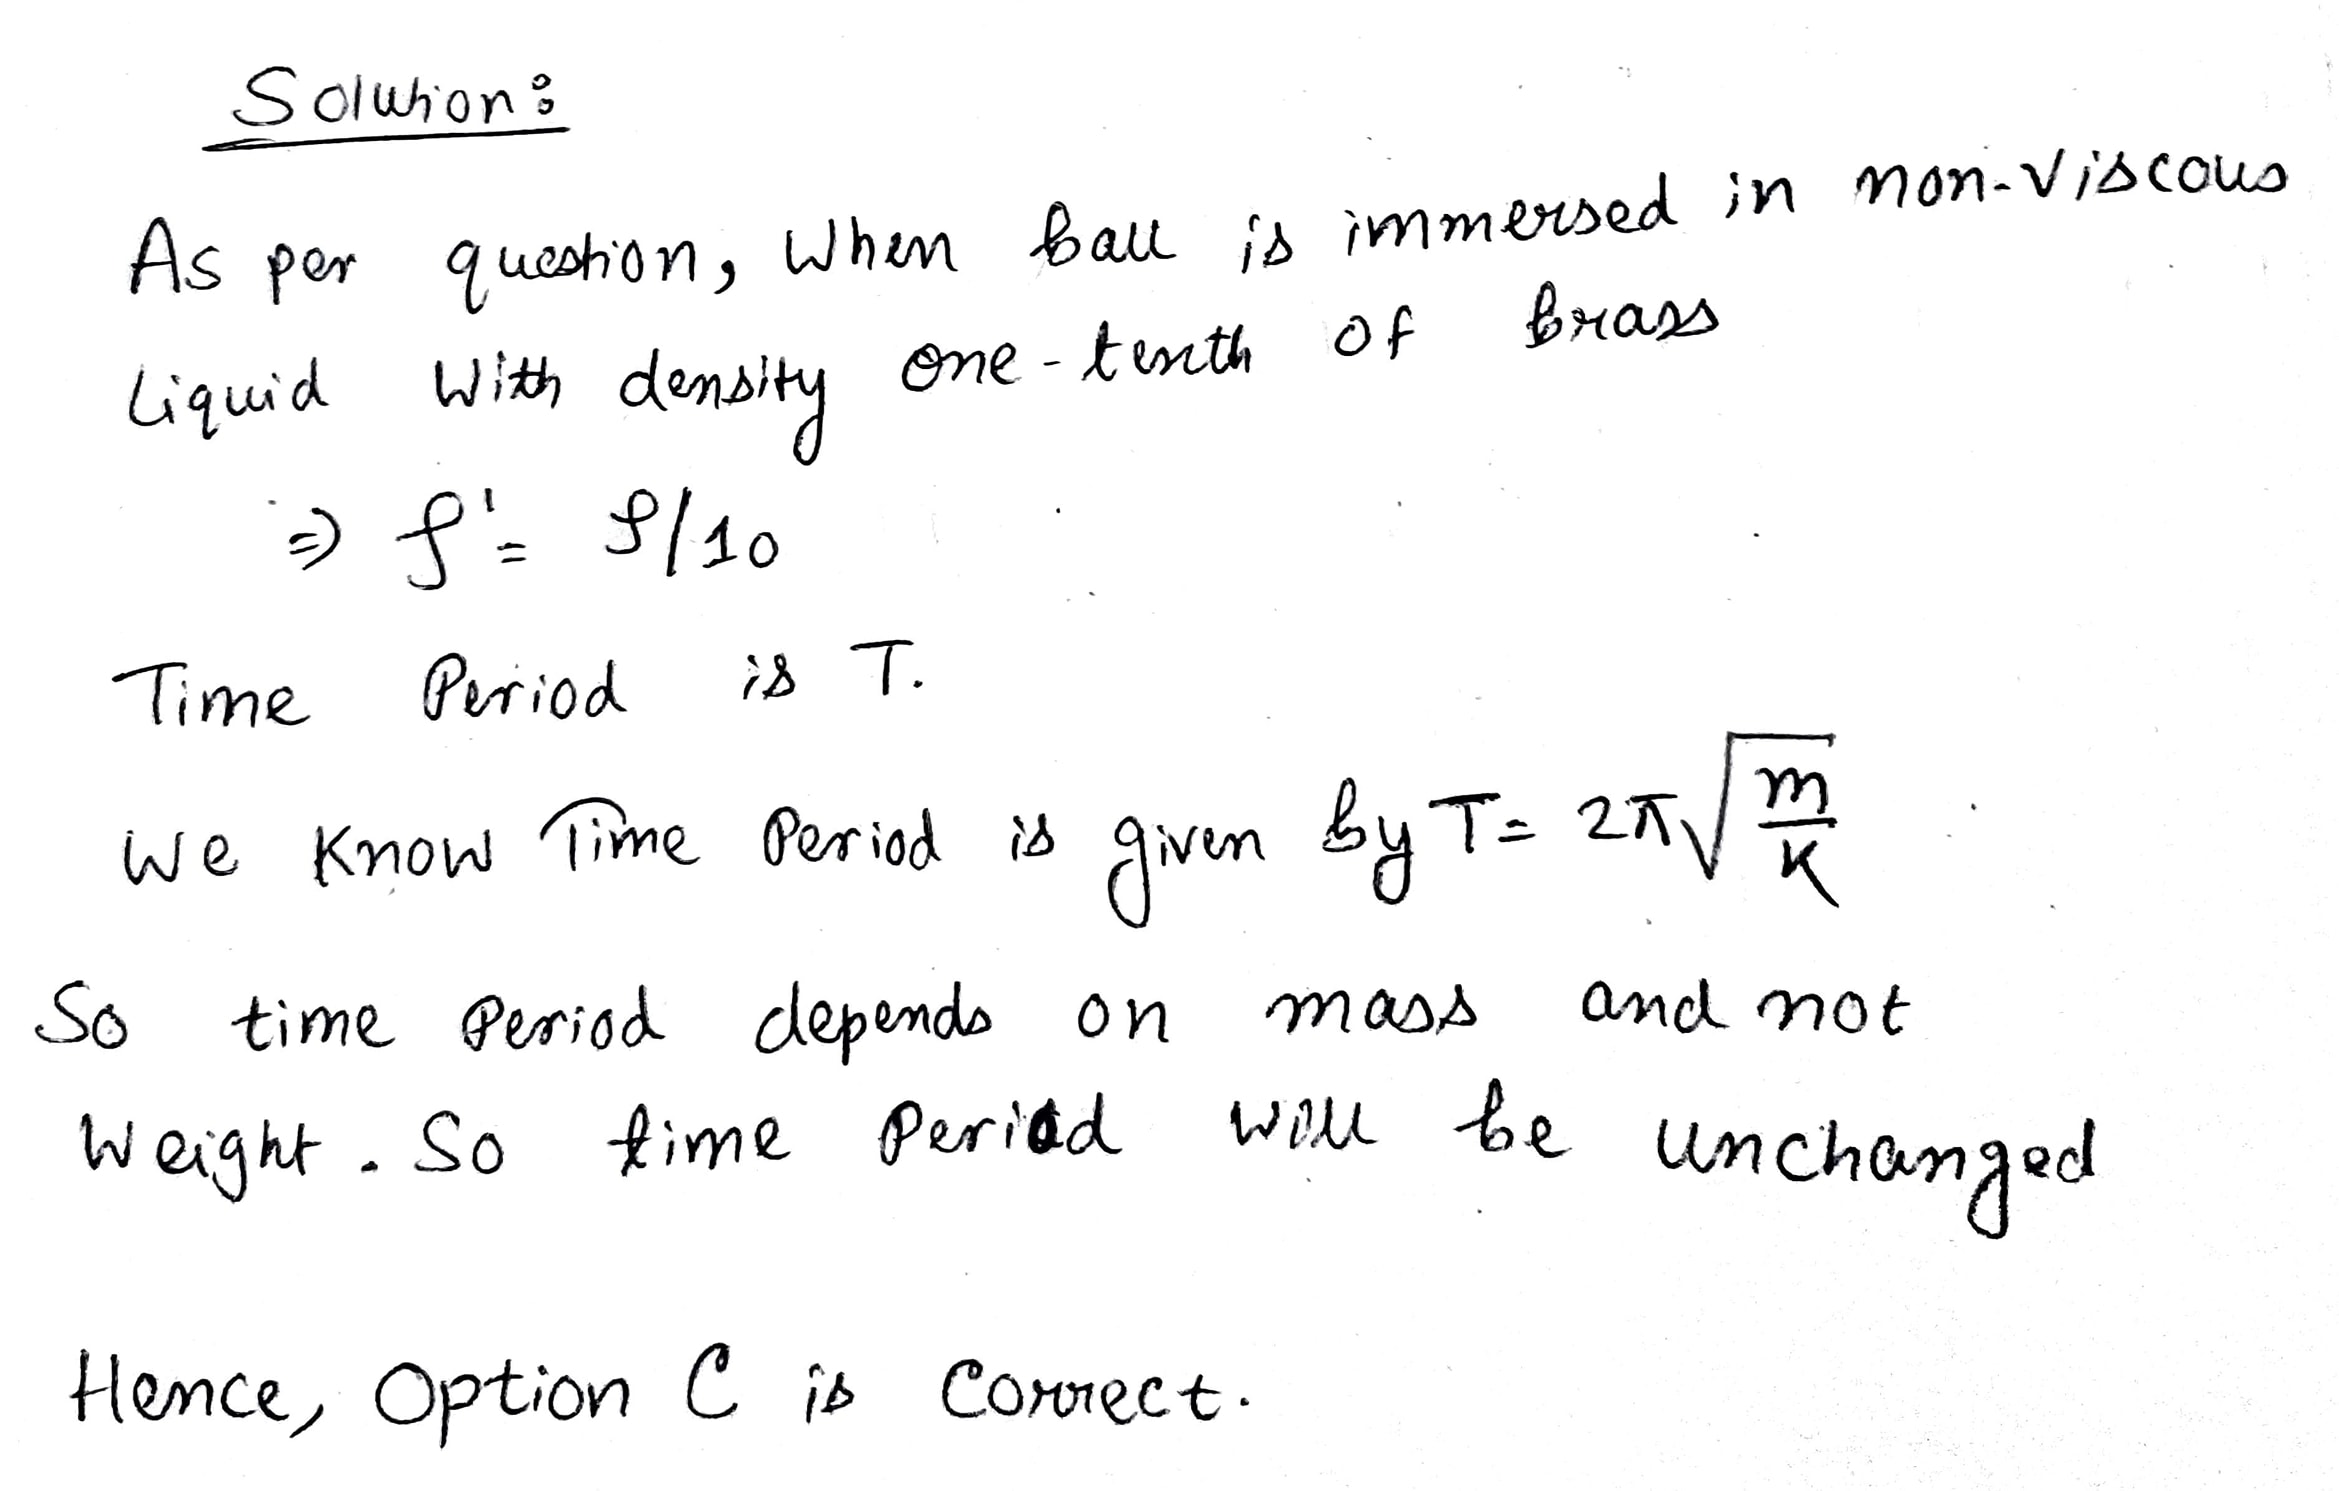 Solution:
As per question, When ball is immersed in non-viscous
Liquid With density one-tenth of brass
⇒ ρ' = ρ/10
Time Period is T.
We Know Time Period is given by T = 2π√(m/K)
So time Period depends on mass and not
Weight. So time Period will be unchanged
Hence, Option C is Correct.